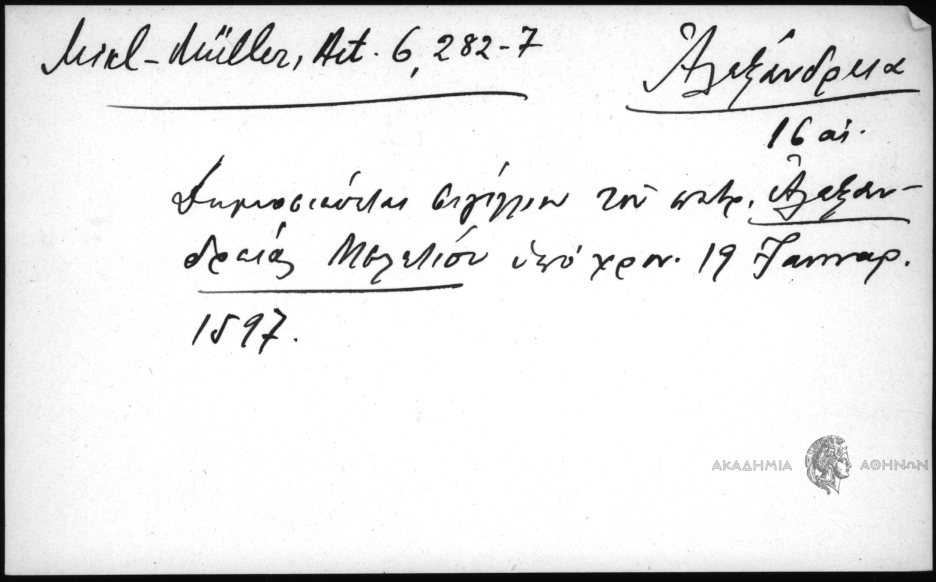 Mikl-Müller, Act. 6, 282-7
Ἀλεξάνδρεια
16 αἰ.
Δημοσιεύεται σιγίλλιον τοῦ πατρ. Ἀλεξαν-
δρείας Μελετίου ὑπό χρον. 19 Ἰανουαρ.
1597.
ΑΚΑΔΗΜΙΑ ΑΘΗΝΩΝ